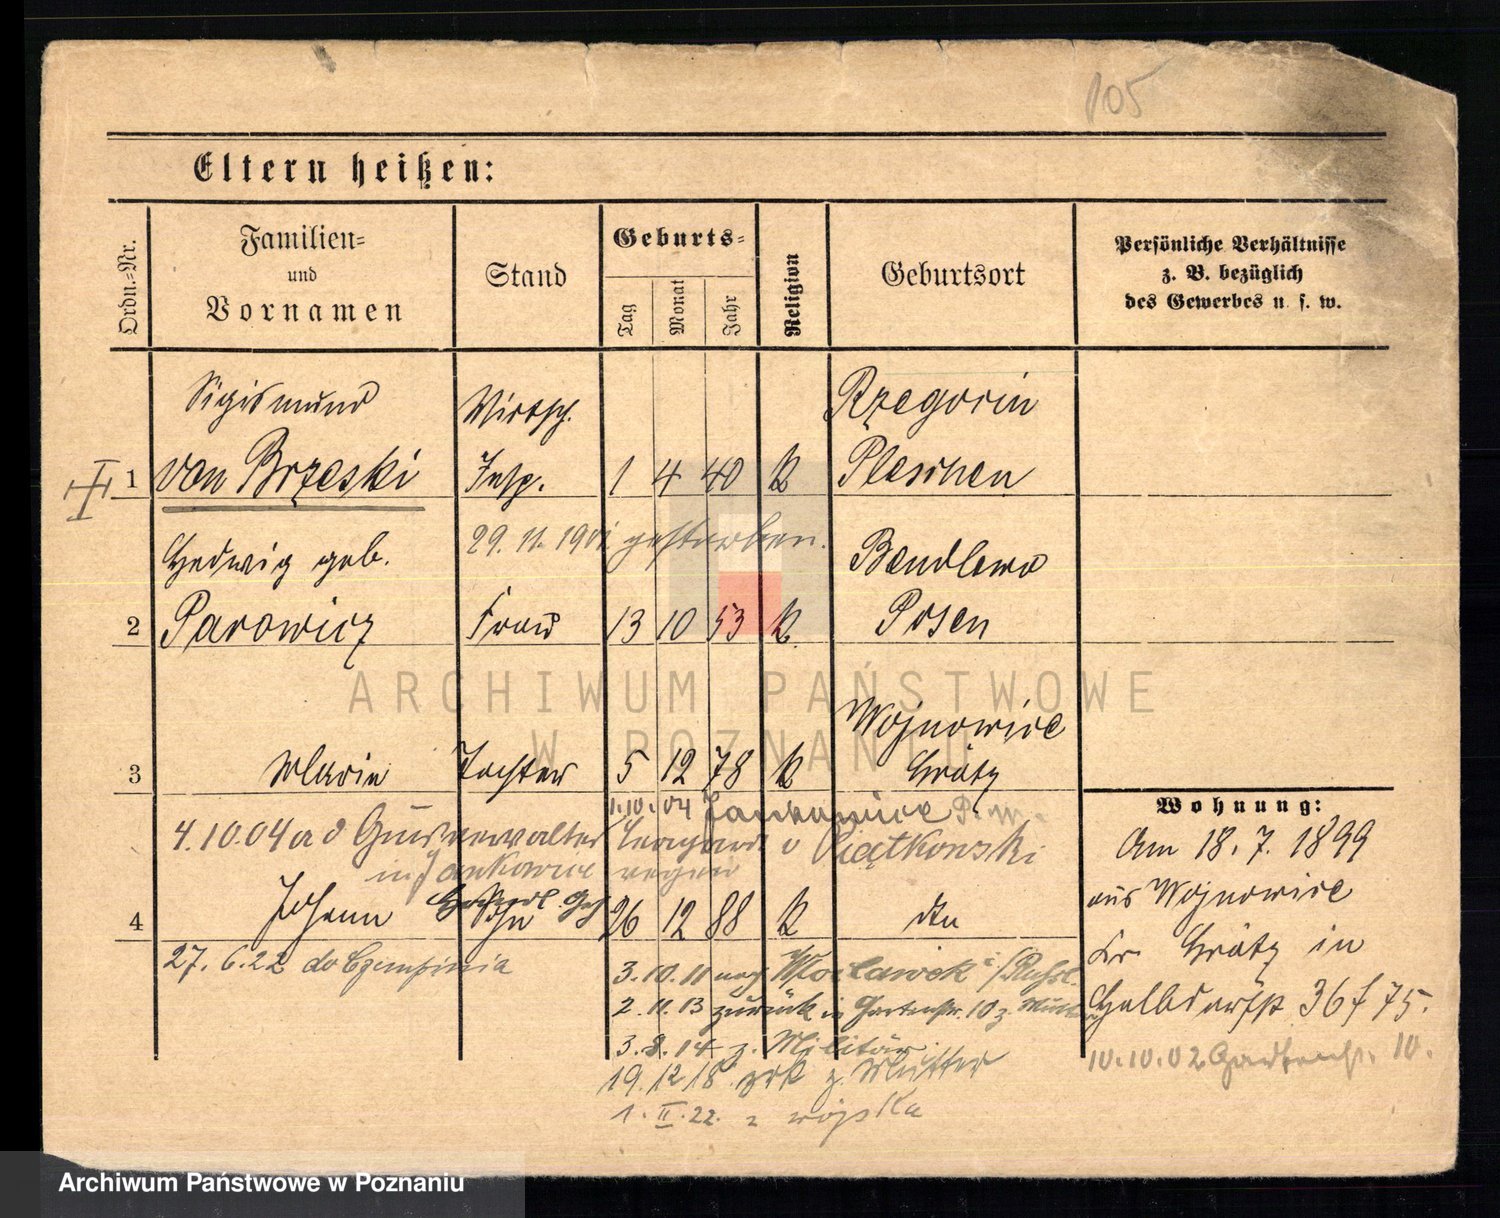 105
Eltern heißen:
Ordn.=Nr.
Familien=
und
Vornamen
Stand
Geburts=
Tag
Monat
Jahr
Religion
Geburtsort
Persönliche Verhältnisse
z. B. bezüglich
des Gewerbes u. s. w.
Sigismund
Wirtsch.
Rzegocin
1 von Brzeski Insp. 1 4 40 K Pleschen
29. 11. 1901 gestorben.
Hedwig geb.
Bendlewo
2 Parowicz Frau 13 10 53 K. Posen
ARCHIWUM PAŃSTWOWE
W POZNANIU
Wojnowice
3 Marie Tochter 5 12 78 K Grätz
1.10.04 Jankowice P. W.
4.10.04 a d Gutsverwalter v Piątkowski
in Jankowice
4 Johann 26 12 88 K dto
27.6.22 do Czempinia
3.10.11 nach Wloclawek /Russl.
2.11.13 zurück in Gartenstr. 10 z. Mutter
3.8.14 z. Militär.
19.12.18 zrk z. Mutter
1.II.22. z wojska
Wohnung:
Am 18.7.1899
aus Wojnowice
Kr. Grätz in
Halbdorfstr 36 f 75.
10.10.02 Gartenstr. 10.
Archiwum Państwowe w Poznaniu